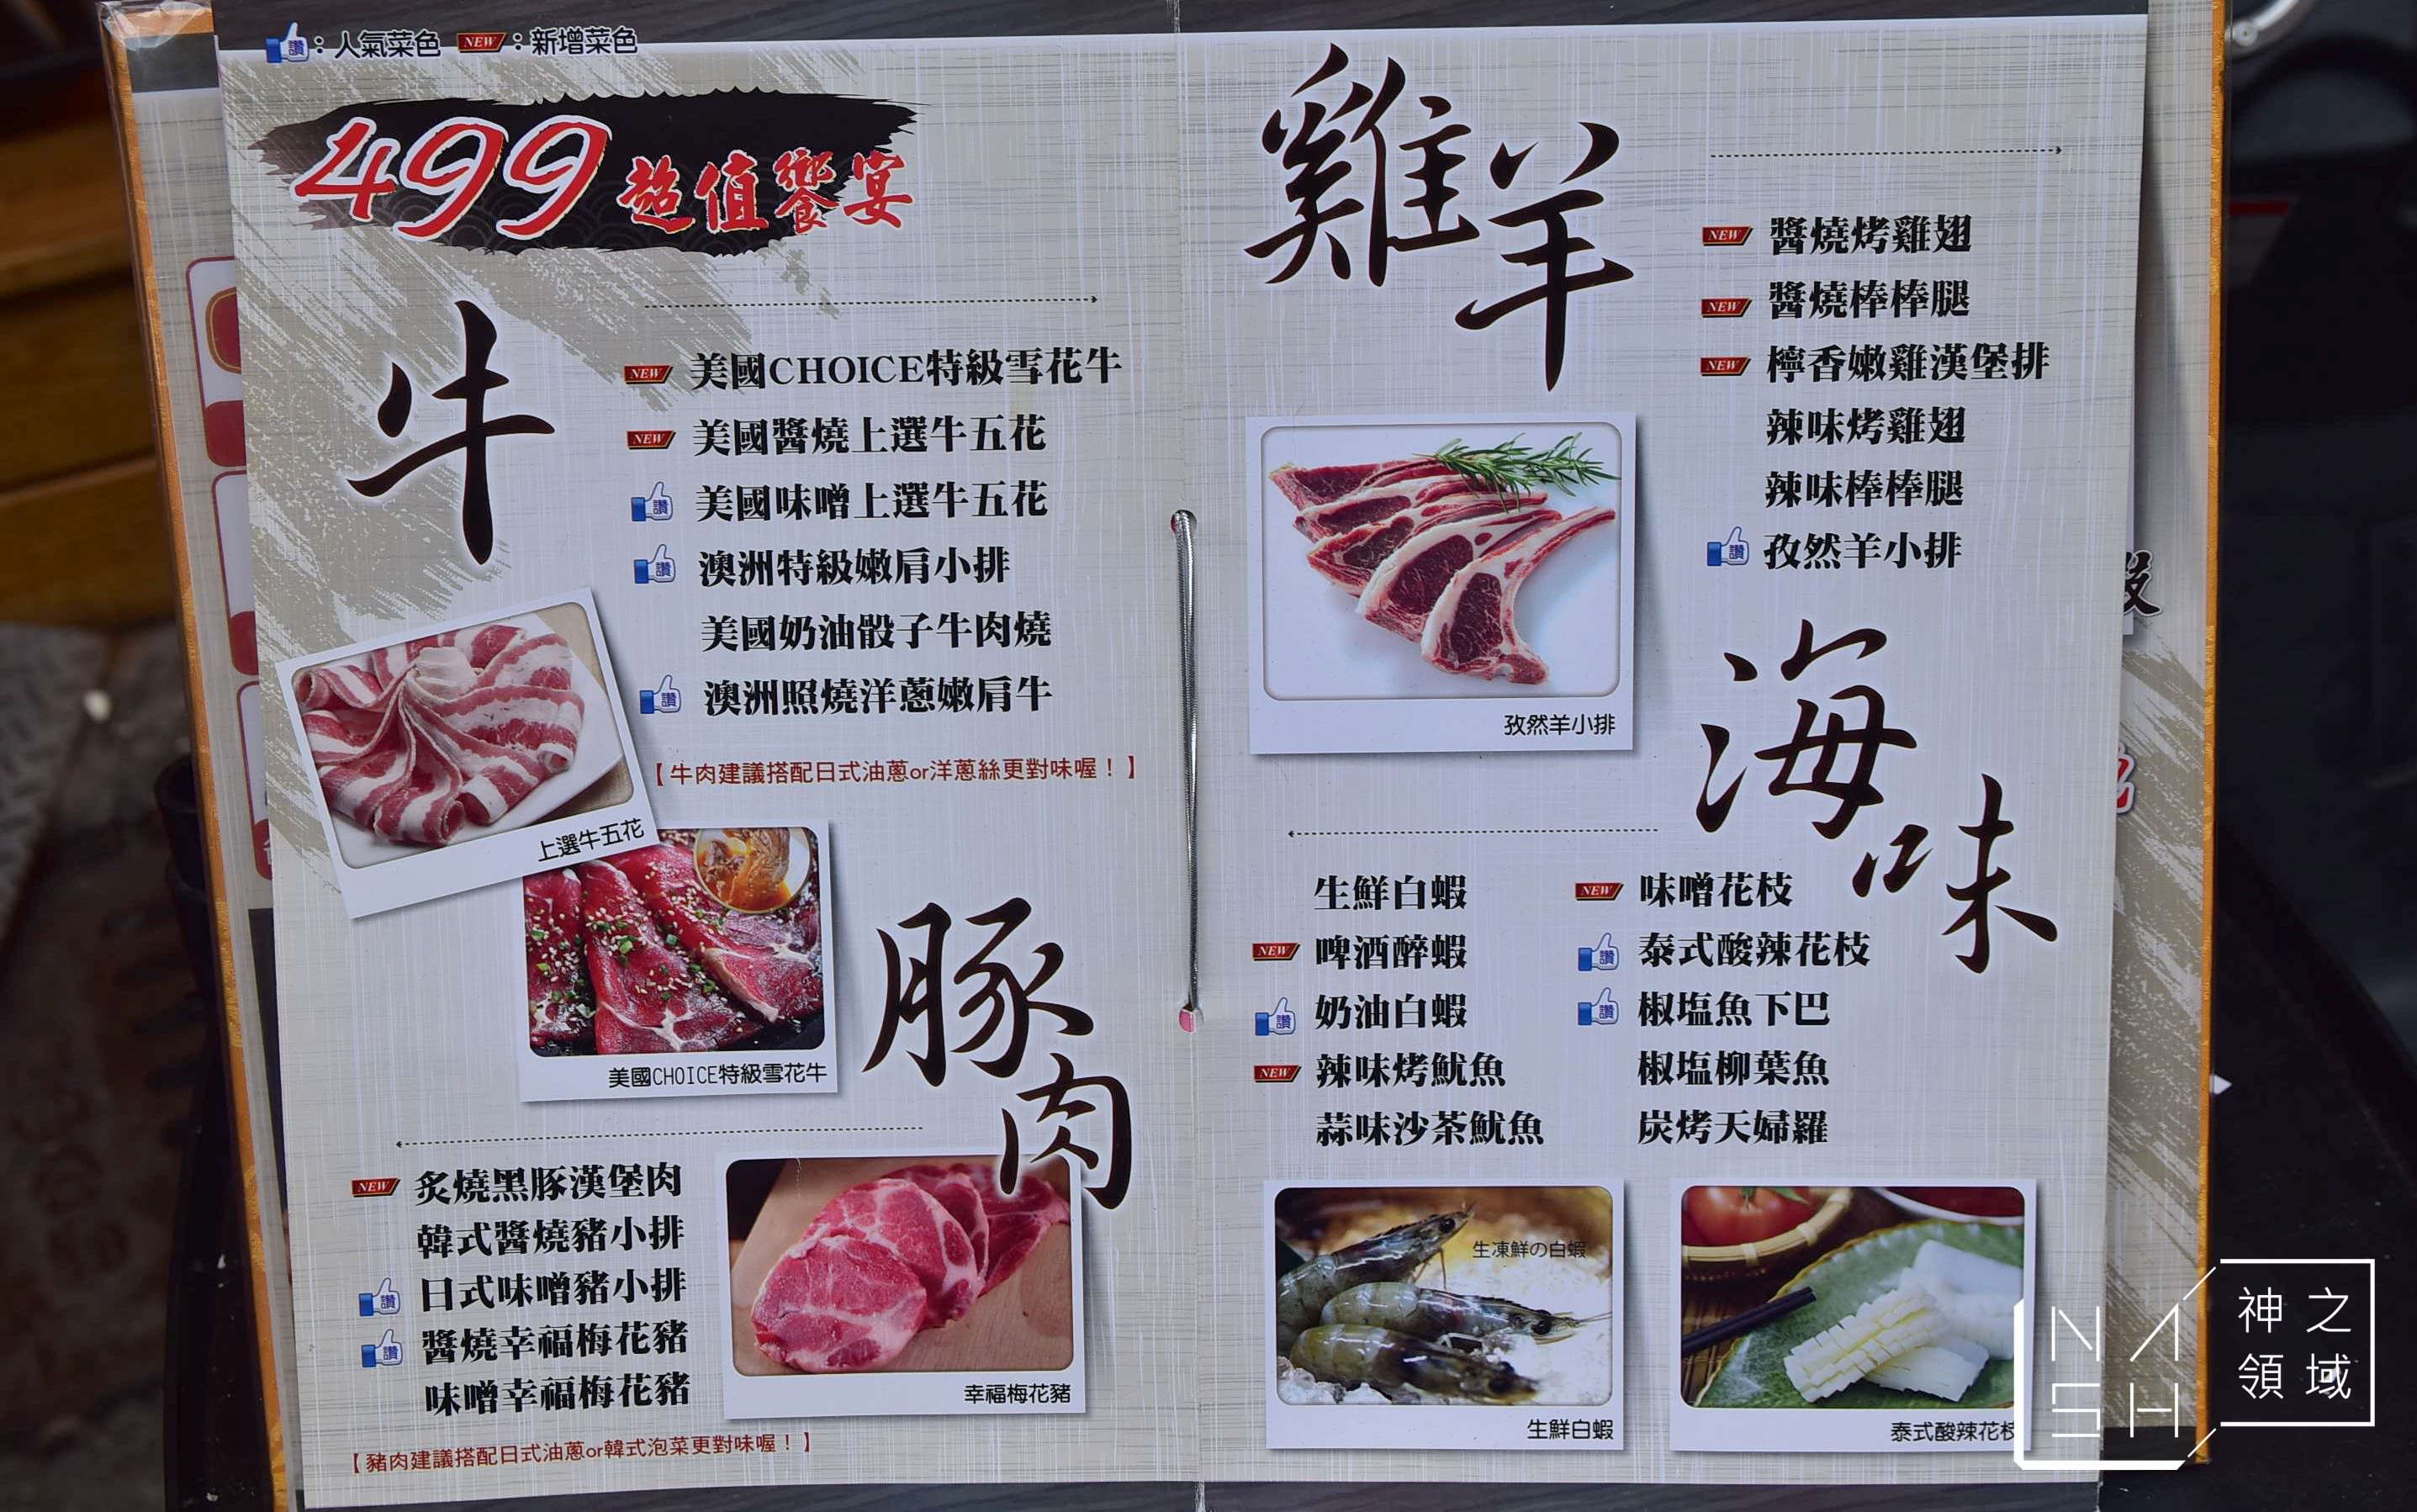 讚：人氣菜色 NEW：新增菜色
499超值饗宴
牛
NEW 美國CHOICE特級雪花牛
NEW 美國醬燒上選牛五花
讚 美國味噌上選牛五花
讚 澳洲特級嫩肩小排
美國奶油骰子牛肉燒
讚 澳洲照燒洋蔥嫩肩牛
【牛肉建議搭配日式油蔥or洋蔥絲更對味喔！】
上選牛五花
美國CHOICE特級雪花牛
豚肉
NEW 炙燒黑豚漢堡肉
韓式醬燒豬小排
讚 日式味噌豬小排
讚 醬燒幸福梅花豬
味噌幸福梅花豬
幸福梅花豬
【豬肉建議搭配日式油蔥or韓式泡菜更對味喔！】
雞羊
NEW 醬燒烤雞翅
NEW 醬燒棒棒腿
NEW 檸香嫩雞漢堡排
辣味烤雞翅
辣味棒棒腿
讚 孜然羊小排
孜然羊小排
海味
生鮮白蝦
NEW 啤酒醉蝦
讚 奶油白蝦
NEW 辣味烤魷魚
蒜味沙茶魷魚
NEW 味噌花枝
讚 泰式酸辣花枝
讚 椒塩魚下巴
椒塩柳葉魚
炭烤天婦羅
生凍鮮の白蝦
生鮮白蝦
泰式酸辣花枝
NASH
神之
領域